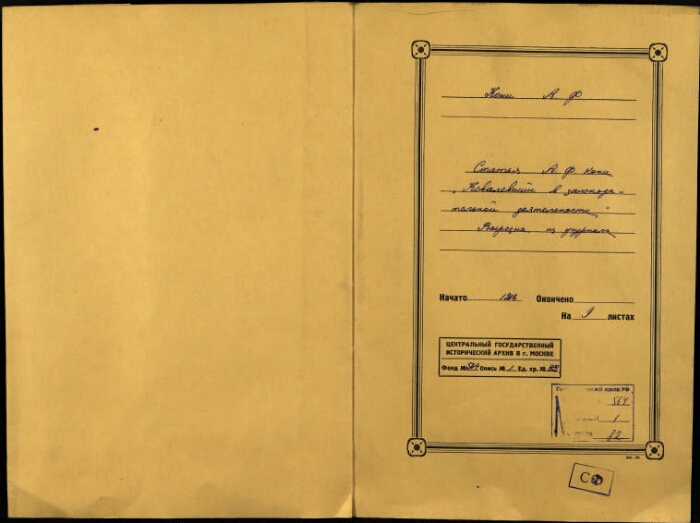 Кони А Ф
Статья А. Ф Кони
„Ковалевский в законода-
тельной деятельности"
Вырезка из журнала
Начато Окончено
На 9 листах
ЦЕНТРАЛЬНЫЙ ГОСУДАРСТВЕННЫЙ
ИСТОРИЧЕСКИЙ АРХИВ В г. МОСКВЕ
Фонд № 564 Опись № 1 Ед. хр. № 82
архив РФ
564
1
82
СФ